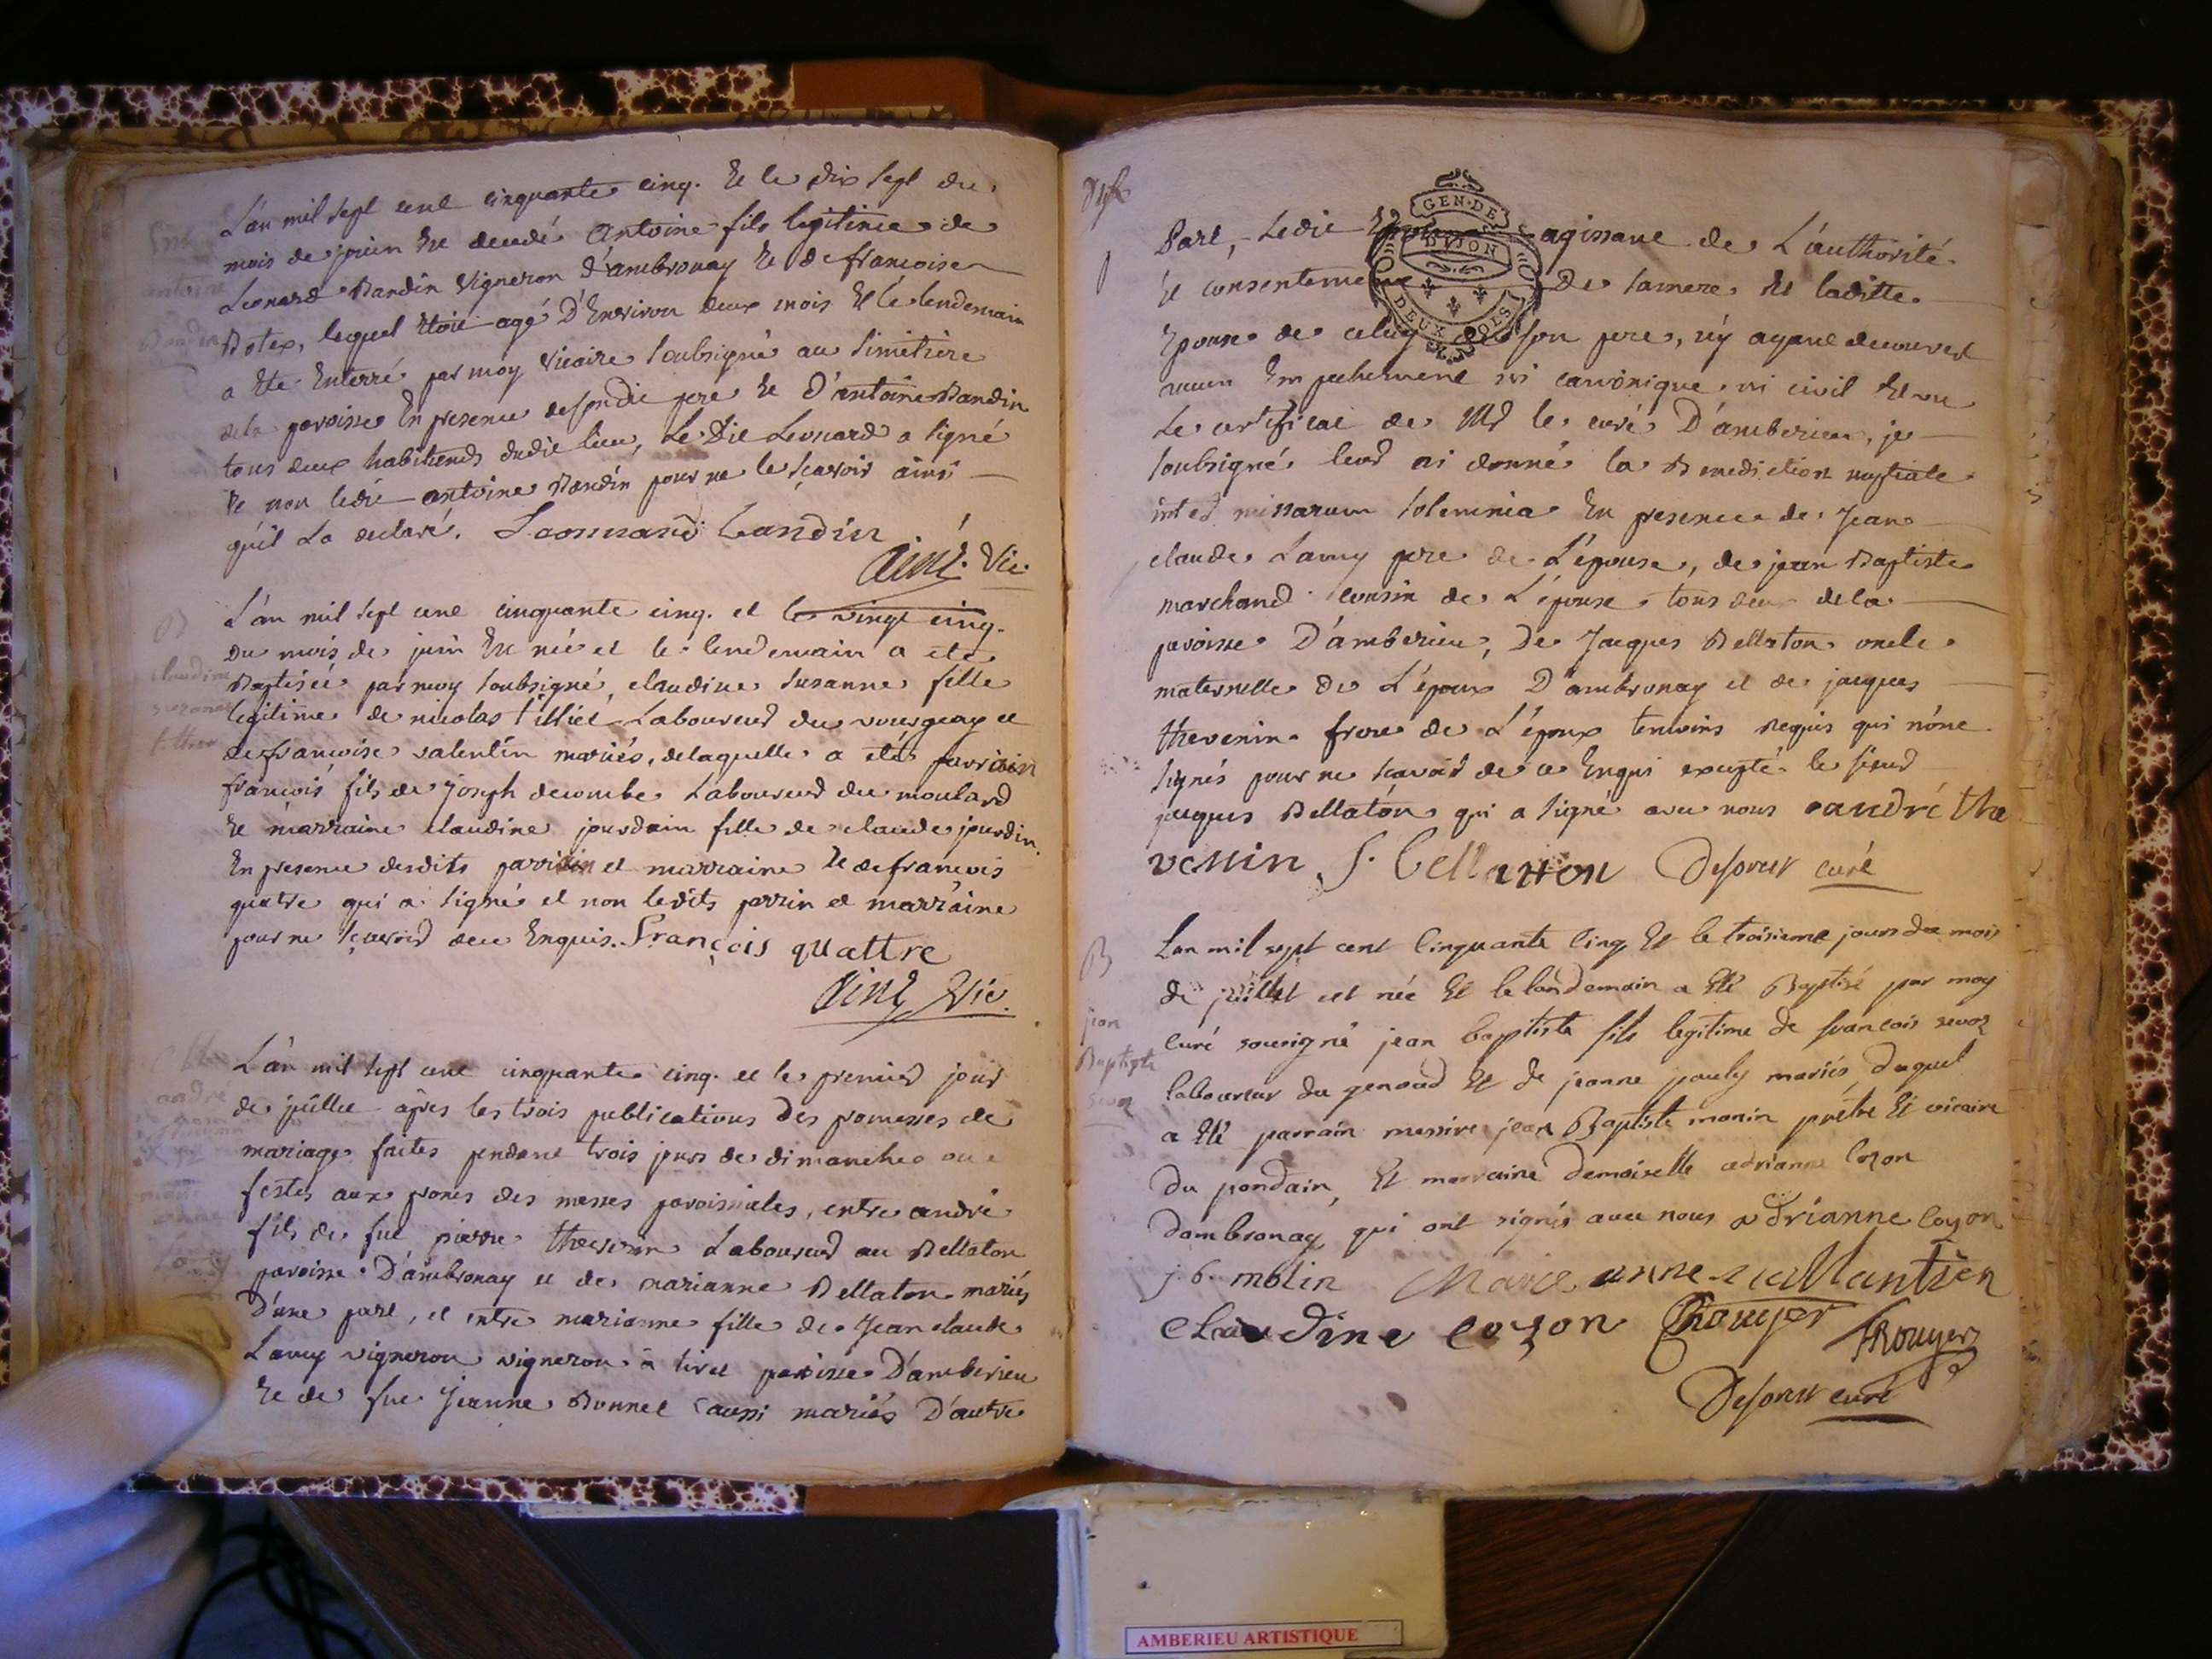 L'an mil sept cent cinquante cinq. Et le dix sept du
mois de juin Est decedé Antoine fils legitime de
Leonard Bandin vigneron d'ambronay Et de francoise
Botex, lequel Etoit agé D'Environ deux mois Et le lendemain
a Eté Enterré par moy vicaire soubsigné au simetiere
de la paroisse En presence de sondit pere Et D'antoine Bandin
tous deux habitends dudit lieu, Le Dit Leonard a signé
Et non ledit antoine Bandin pour ne le sçavoir ainsi
qu'il La declaré. Leonnard bandin
Aimé. Vic.
L'an mil sept cent cinquante cinq. et le vingt cinq.
du mois de juin Est née et le lendemain a eté
Baptisée par moy soubsigné, claudine susanne fille
legitime de nicolas tillier Laboureur du vourgeay et
de francoise valentin mariés, de laquelle a eté parrain
francois fils de Joseph decombe Laboureur du moulard
Et marraine claudine jourdain fille de claude jourdin.
En presence desdits parrain et marraine Et de francois
quatre qui a signé et non ledits parrin et marraine
pour ne sçavoir de ce Enquis. François quattre
Aimé Vic.
L'an mil sept cent cinquante cinq. et le premier jour
de juillet apres les trois publications Des promesses de
mariage faites pendant trois jours de dimanche ou
festes aux prones des messes paroissiales, entre andré
fils de fut pierre thevenin Laboureur au Bellaton
paroisse D'ambronay et de marianne Bellaton mariés
D'une part, et entre marianne fille de Jean claude
Lamy vigneron vigneron à tiret paroisse D'amberieu
Et de fut Jeanne Bonnet aussi mariés D'autre
Part, Ledit agissant de L'authorité
GEN. DE
DIJON
DEUX SOLS
Et consenteme De samere Et laditte
Epouse de celuy de son pere, n'y ayant decouvert
aucun Empechement ni canonique ni civil Et vu
Le certificat de Mr le curé D'amberieu, je
soubsigné leur ai donné la Benediction nuptiale
inter missarum solemnia En presence de Jean
claude Lamy pere de L'epouse, de jean Baptiste
marchand cousin de L'épouse tous deux de la
paroisse D'amberieu, De Jacques Bellaton oncle
maternelle De L'époux D'ambronay et de jacques
thevenin frere de L'époux temoins Requis qui n'one
signés pour ne sçavoir de ce Enquis excepté le sieur
jacques Bellaton qui a signé avec nous andré the
venin J. bellaton curé
B
jean
Baptiste
Lan mil sept cent Cinquante Cinq Et le troisieme jours du mois
de juillet est née Et le landemain a Eté Baptisé par moy
Curé sousigné jean baptiste fils legitime de francois
laboureur du genoud Et de jeanne pauly mariés duquel
a Eté parrain messire jean Baptiste monin prétre Et vicaire
Du pondain, Et marraine Demoiselle adrianne cozon
Dambronay qui ont signés avec nous adrianne cozon
j. b. molin Marie anne
Claudine cozon Rouyer Rouyer
curé
AMBERIEU ARTISTIQUE